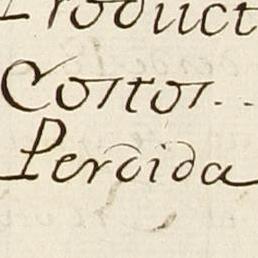 Product
Costos..
Perdida